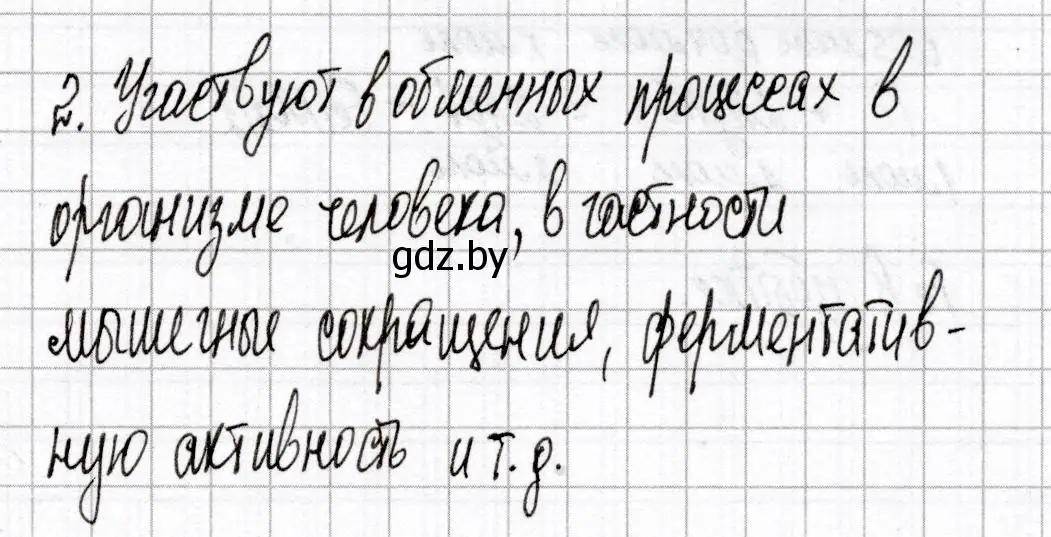 2. Участвуют в обменных процессах в
организме человека, в частности
gdz.by
мышечные сокращения, ферментатив-
ную активность и т. д.